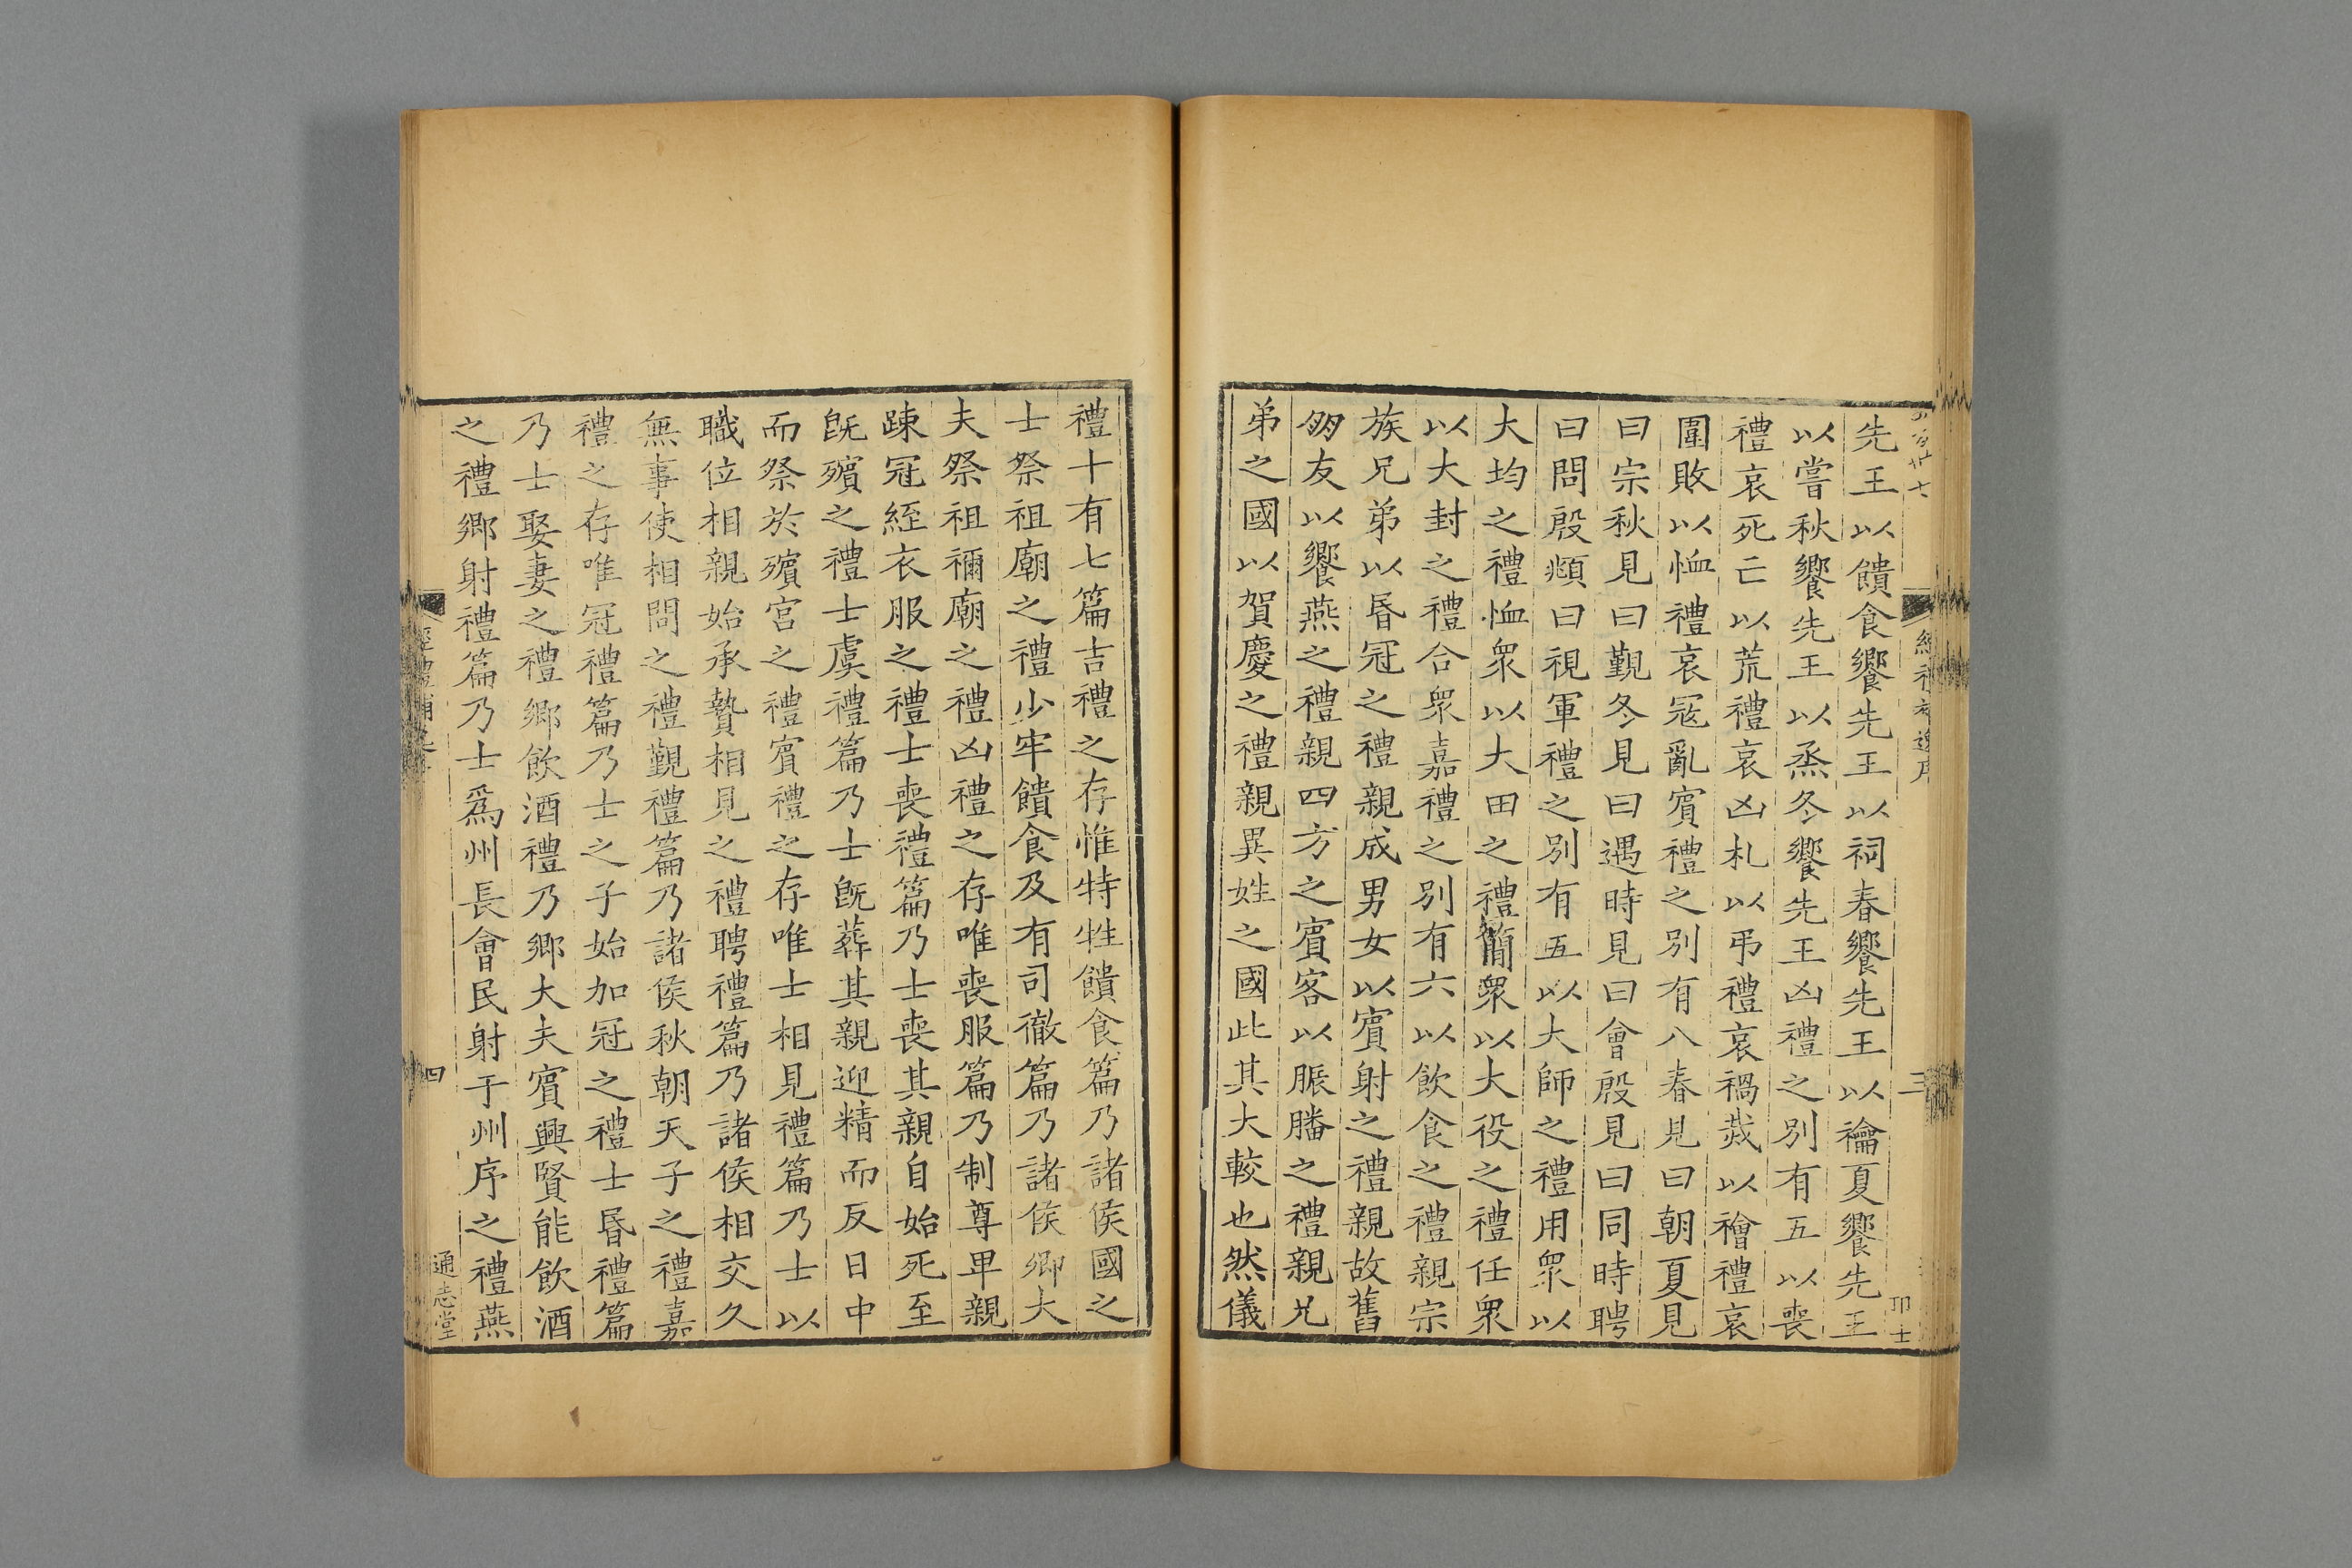 先王以饋食饗先王以祠春饗先王以禴夏饗先王
以嘗秋饗先王以烝冬饗先王凶禮之別有五以喪
禮哀死亡以荒禮哀凶札以弔禮哀禍烖以禬禮哀
圍敗以恤禮哀寇亂賓禮之別有八春見曰朝夏見
曰宗秋見曰覲冬見曰遇時見曰會殷見曰同時聘
曰問殷覜曰視軍禮之別有五以大師之禮用衆以
大均之禮恤衆以大田之禮簡衆以大役之禮任衆
以大封之禮合衆嘉禮之別有六以飲食之禮親宗
族兄弟以昏冠之禮親成男女以賓射之禮親故舊
朋友以饗燕之禮親四方之賓客以脤膰之禮親兄
弟之國以賀慶之禮親異姓之國此其大較也然儀
三
禮十有七篇吉禮之存惟特牲饋食篇乃諸侯國之
士祭祖廟之禮少牢饋食及有司徹篇乃諸侯卿大
夫祭祖禰廟之禮凶禮之存唯喪服篇乃制尊卑親
踈冠絰衣服之禮士喪禮篇乃士喪其親自始死至
旣殯之禮士虞禮篇乃士旣葬其親迎精而反日中
而祭於殯宮之禮賓禮之存唯士相見禮篇乃士以
職位相親始承贄相見之禮聘禮篇乃諸侯相交久
無事使相問之禮覲禮篇乃諸侯秋朝天子之禮嘉
禮之存唯冠禮篇乃士之子始加冠之禮士昏禮篇
乃士娶妻之禮鄉飲酒禮乃鄉大夫賓興賢能飲酒
之禮鄉射禮篇乃士爲州長會民射于州序之禮燕
四
通志堂